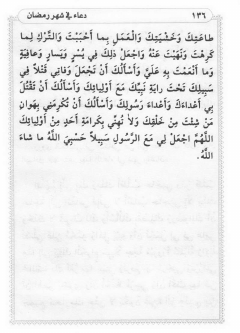 ١٣٦ دعاء في شهر رمضان
طَاعَتِكَ وَخَشْيَتِكَ وَالْعَمَلِ بِما أَحْبَبْتَ وَالتَّرْكِ لِما
كَرِهْتَ وَنَهَيْتَ عَنْهُ وَاجْعَلْ ذلِكَ فِي يُسْرٍ وَيَسارٍ وَعافِيَةٍ
وَما أَنْعَمْتَ بِهِ عَلَيَّ وَأَسْأَلُكَ أَنْ تَجْعَلَ وَفاتِي قَتْلاً فِي
سَبِيلِكَ تَحْتَ رايَةِ نَبِيِّكَ مَعَ أَوْلِيائِكَ وَأَسْأَلُكَ أَنْ تَقْتُلَ
بِي أَعْداءَكَ وَأَعْداءَ رَسُولِكَ وَأَسْأَلُكَ أَنْ تُكْرِمَنِي بِهَوانِ
مَنْ شِئْتَ مِنْ خَلْقِكَ وَلاٰ تُهِنِّي بِكَرامَةِ أَحَدٍ مِنْ أَوْلِيائِكَ
اللَّهُمَّ اجْعَلْ لِي مَعَ الرَّسُولِ سَبِيلاً حَسْبِيَ اللَّهُ ما شاءَ
اللَّهُ.